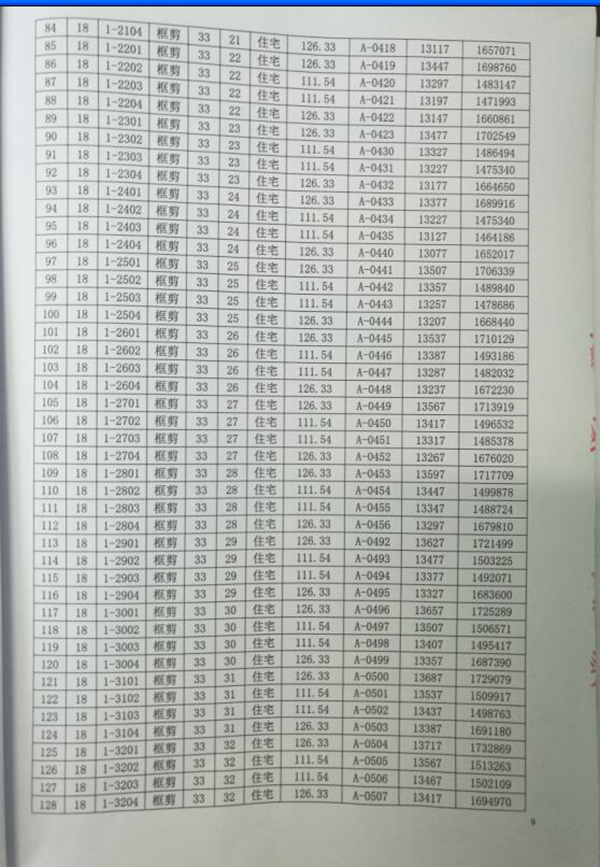 84 18 1-2104 框剪 33 21 住宅 126.33 A-0418 13117 1657071
85 18 1-2201 框剪 33 22 住宅 126.33 A-0419 13447 1698760
86 18 1-2202 框剪 33 22 住宅 111.54 A-0420 13297 1483147
87 18 1-2203 框剪 33 22 住宅 111.54 A-0421 13197 1471993
88 18 1-2204 框剪 33 22 住宅 126.33 A-0422 13147 1660861
89 18 1-2301 框剪 33 23 住宅 126.33 A-0423 13477 1702549
90 18 1-2302 框剪 33 23 住宅 111.54 A-0430 13327 1486494
91 18 1-2303 框剪 33 23 住宅 111.54 A-0431 13227 1475340
92 18 1-2304 框剪 33 23 住宅 126.33 A-0432 13177 1664650
93 18 1-2401 框剪 33 24 住宅 126.33 A-0433 13377 1689916
94 18 1-2402 框剪 33 24 住宅 111.54 A-0434 13227 1475340
95 18 1-2403 框剪 33 24 住宅 111.54 A-0435 13127 1464186
96 18 1-2404 框剪 33 24 住宅 126.33 A-0440 13077 1652017
97 18 1-2501 框剪 33 25 住宅 126.33 A-0441 13507 1706339
98 18 1-2502 框剪 33 25 住宅 111.54 A-0442 13357 1489840
99 18 1-2503 框剪 33 25 住宅 111.54 A-0443 13257 1478686
100 18 1-2504 框剪 33 25 住宅 126.33 A-0444 13207 1668440
101 18 1-2601 框剪 33 26 住宅 126.33 A-0445 13537 1710129
102 18 1-2602 框剪 33 26 住宅 111.54 A-0446 13387 1493186
103 18 1-2603 框剪 33 26 住宅 111.54 A-0447 13287 1482032
104 18 1-2604 框剪 33 26 住宅 126.33 A-0448 13237 1672230
105 18 1-2701 框剪 33 27 住宅 126.33 A-0449 13567 1713919
106 18 1-2702 框剪 33 27 住宅 111.54 A-0450 13417 1496532
107 18 1-2703 框剪 33 27 住宅 111.54 A-0451 13317 1485378
108 18 1-2704 框剪 33 27 住宅 126.33 A-0452 13267 1676020
109 18 1-2801 框剪 33 28 住宅 126.33 A-0453 13597 1717709
110 18 1-2802 框剪 33 28 住宅 111.54 A-0454 13447 1499878
111 18 1-2803 框剪 33 28 住宅 111.54 A-0455 13347 1488724
112 18 1-2804 框剪 33 28 住宅 126.33 A-0456 13297 1679810
113 18 1-2901 框剪 33 29 住宅 126.33 A-0492 13627 1721499
114 18 1-2902 框剪 33 29 住宅 111.54 A-0493 13477 1503225
115 18 1-2903 框剪 33 29 住宅 111.54 A-0494 13377 1492071
116 18 1-2904 框剪 33 29 住宅 126.33 A-0495 13327 1683600
117 18 1-3001 框剪 33 30 住宅 126.33 A-0496 13657 1725289
118 18 1-3002 框剪 33 30 住宅 111.54 A-0497 13507 1506571
119 18 1-3003 框剪 33 30 住宅 111.54 A-0498 13407 1495417
120 18 1-3004 框剪 33 30 住宅 126.33 A-0499 13357 1687390
121 18 1-3101 框剪 33 31 住宅 126.33 A-0500 13687 1729079
122 18 1-3102 框剪 33 31 住宅 111.54 A-0501 13537 1509917
123 18 1-3103 框剪 33 31 住宅 111.54 A-0502 13437 1498763
124 18 1-3104 框剪 33 31 住宅 126.33 A-0503 13387 1691180
125 18 1-3201 框剪 33 32 住宅 126.33 A-0504 13717 1732869
126 18 1-3202 框剪 33 32 住宅 111.54 A-0505 13567 1513263
127 18 1-3203 框剪 33 32 住宅 111.54 A-0506 13467 1502109
128 18 1-3204 框剪 33 32 住宅 126.33 A-0507 13417 1694970
9